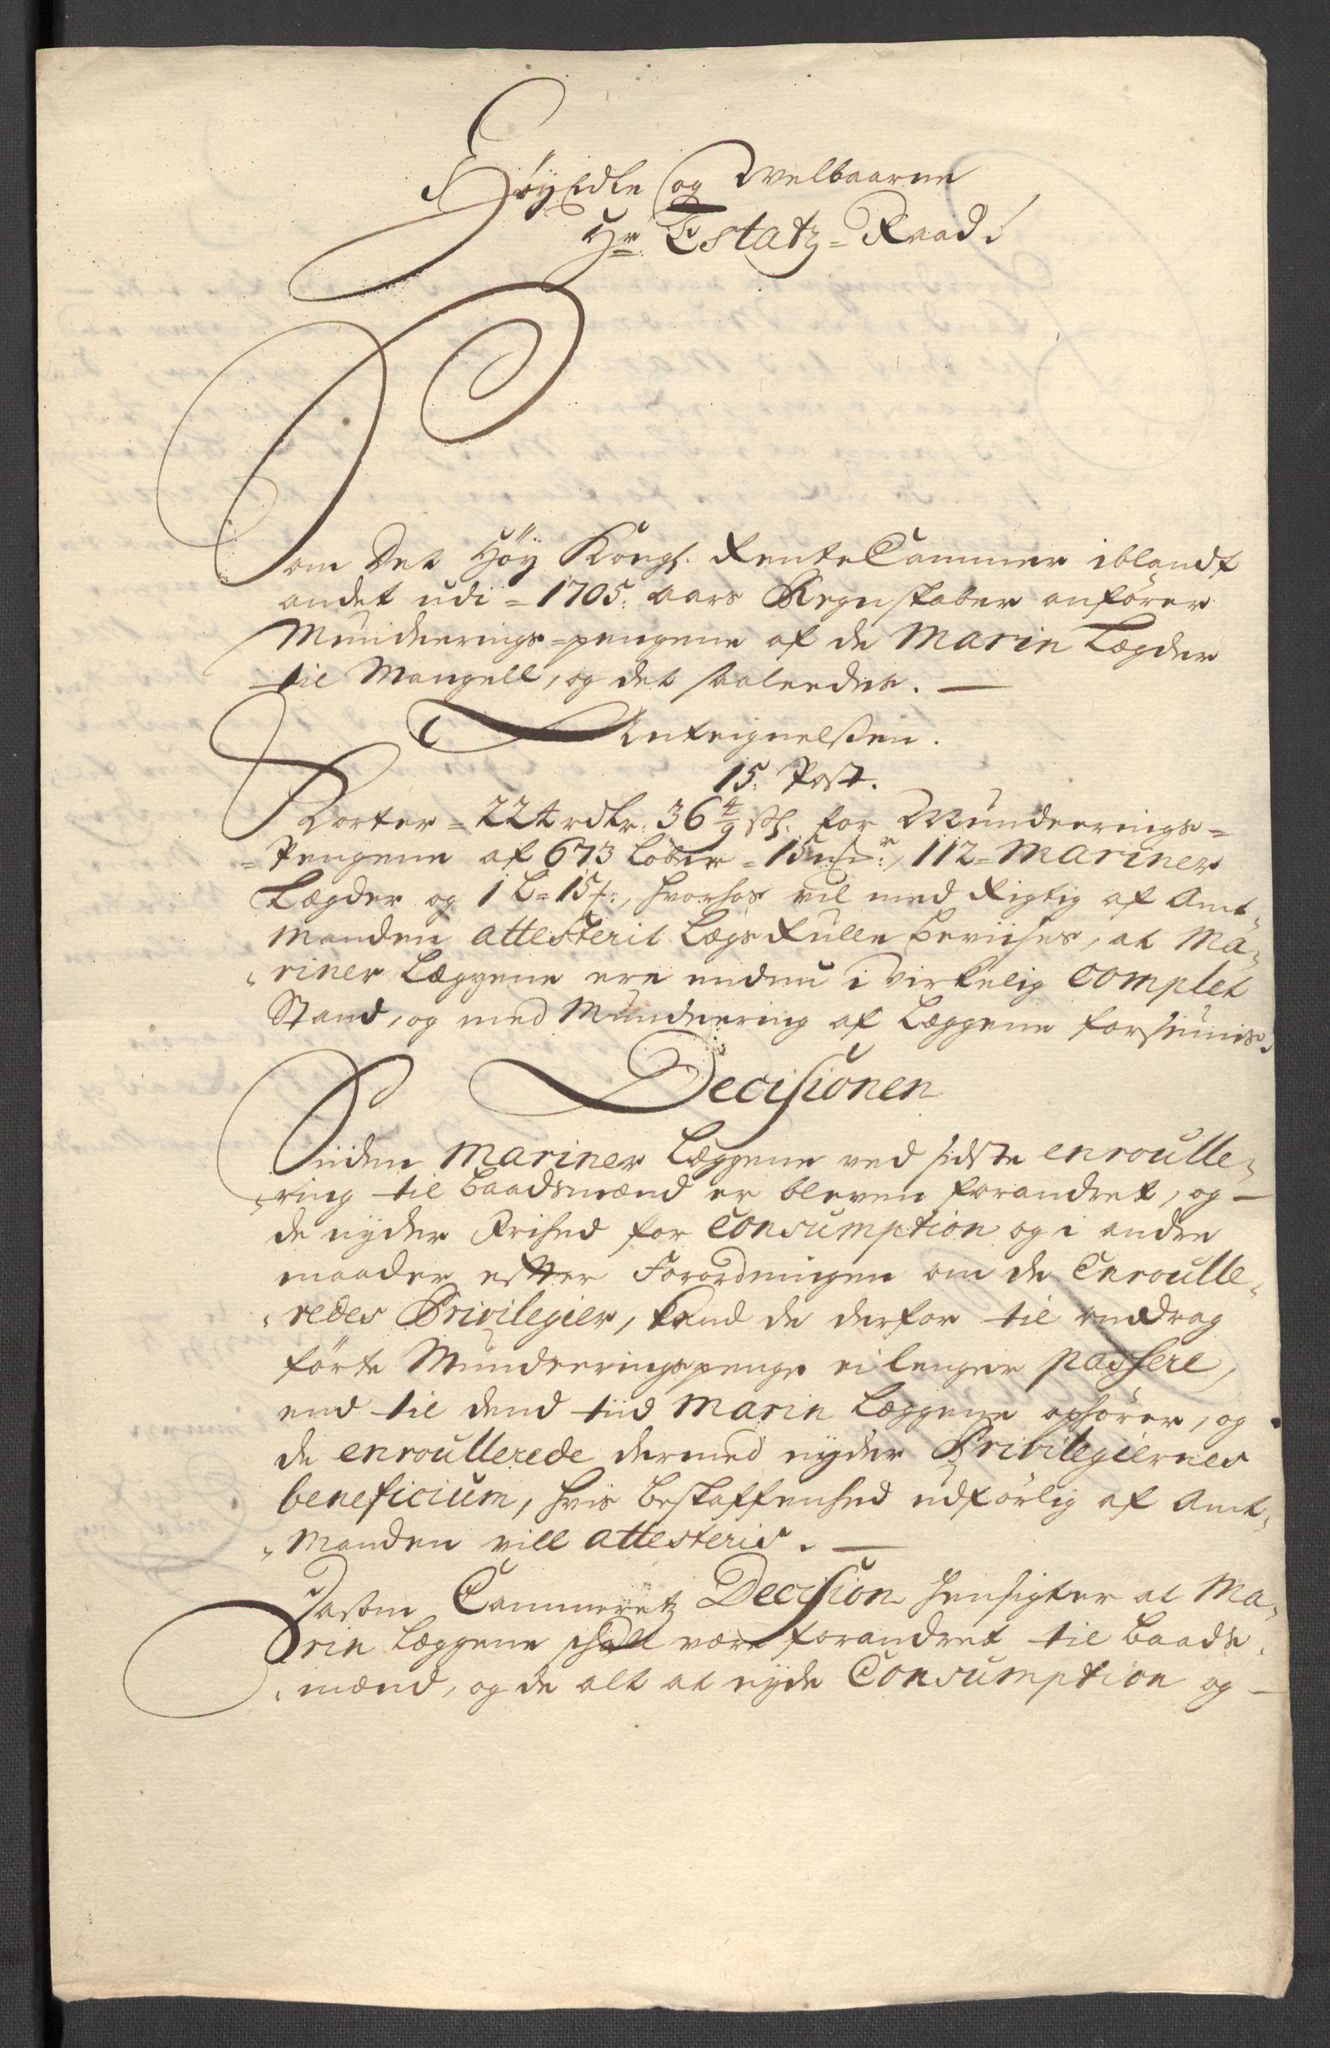 HøyEdle og Welbaarne
Hr Estatz-Raad!
Som Det Høy Kongl. RenteCammer iblandt
andet udi = 1705. aars Regnskaber anfører
Munderings-pengene af de Marin Lægder
til Mangell, og det saaleedes. —
Anteignelßen.
15. Post.
Korter = 224 rdlr. 36 4/9 sk. for Munderings=
=Pengene af 673 Løber = 112 = Mariner
Lægder og 1 L = 15, hvorhos vil med Rigtig af Amt-
manden attesterit Lægs Rulle bevises, at Ma-
riner Læggene ere endnu i virkelig Complet
Stand, og med Mundering af Læggene forsiunis.
Decisionen
Siden Mariner Læggene ved sidste enroulle-
ring til Baadsmænd er bleven forandret, og —
de nyder Frihed for Consumption og i andre
maader efter Forordningen om de Enroulle-
redes Privilegier, kand de derfor til andrag
førte Munderingspenge ei lenger passere,
end til dend tiid Marin Læggene ophører, og
de enroullerede dermed nyder Privilegiernes
beneficium, hvis beskaffenhed udførlig af Amt-
manden vill attesteris. —
Jasom Cammeretz Decision hensigter at Ma-
rin Læggene skall være forandret til Baads-
mænd, og de alt at nyde Consumption og —